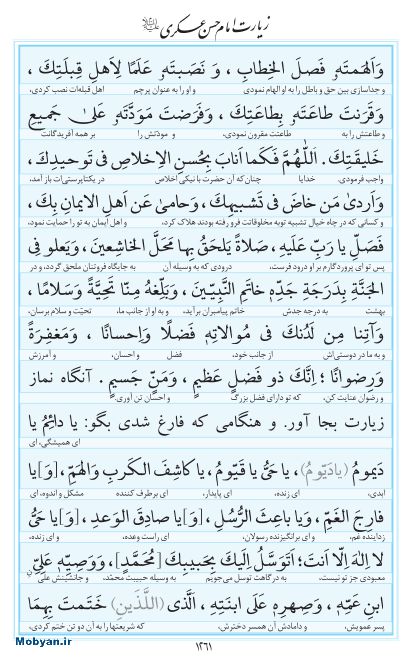 زیارت امام حسن عسکری علیه‌السلام
وَاَلهَمتَهُ فَصلَ الخِطابِ ، وَ نَصَبتَهُ عَلَمًا لِاَهلِ قِبلَتِكَ ،
و جداسازی بین حق و باطل را به او الهام نمودی و او را به عنوان پرچم اهل قبله‌ات نصب کردی،
وَقَرَنتَ طاعَتَهُ بِطاعَتِكَ ، وَفَرَضتَ مَوَدَّتَهُ عَلیٰ جَمیعِ
و طاعتش را به طاعتت مقرون نمودی، و مودّتش را بر همه آفریدگانت
خَلیقَتِكَ . اَللّٰهُمَّ فَكَما اَنابَ بِحُسنِ الاِخلاصِ فی تَوحیدِكَ ،
واجب فرمودی. خدایا چنان‌که آن حضرت با نیکی اخلاص در یکتاپرستی‌ات باز آمد،
وَاَردیٰ مَن خاضَ فی تَشبیهِكَ ، وَحامیٰ عَن اَهلِ الایمانِ بِكَ ،
و کسانی که در چاه خیال تشبیه تو به مخلوقاتت فرو رفته بودند هلاک کرد، و اهل ایمان به تو را حمایت نمود،
فَصَلِّ یا رَبِّ عَلَیهِ ، صَلاةً یَلحَقُ بِها مَحَلَّ الخاشِعینَ ، وَیَعلو فِی
پس تو ای پروردگارم بر او درود فرست، درودی که به وسیله آن به جایگاه فروتنان ملحق گردد، و در
الجَنَّةِ بِدَرَجَةِ جَدِّهِ خاتَمِ النَّبِیّینَ ، وَبَلِّغهُ مِنّا تَحِیَّةً وَسَلامًا ،
بهشت به درجه جدش خاتم پیامبران برآید، و به او از جانب ما، تحیّت و سلام برسان،
وَآتِنا مِن لَدُنكَ فی مُوالاتِهِ فَضلًا وَاِحسانًا ، وَمَغفِرَةً
و به ما در دوستی‌اش از جانب خود، فضل و احسان، و آمرزش
وَرِضوانًا ؛ اِنَّكَ ذو فَضلٍ عَظیمٍ ، وَمَنٍّ جَسیمٍ . آنگاه نماز
و رضوان عنایت کن، که تو دارای فضل بزرگ و احسان تن آوری.
زیارت بجا آور. و هنگامی که فارغ شدی بگو: یا دائِمُ یا
ای همیشگی، ای
دَیمومُ (یادَیّومُ) ، یا حَیُّ یا قَیّومُ ، یا كاشِفَ الكَربِ وَالهَمِّ ، [وَ]یا
ابدی، ای زنده، ای پایدار، ای برطرف کننده مشکل و اندوه، ای
فارِجَ الغَمِّ ، وَیا باعِثَ الرُّسُلِ ، [وَ]یا صادِقَ الوَعدِ ، [وَ]یا حَیُّ
زداینده غم، و ای برانگیزنده رسولان، ای راست وعده، و ای زنده،
لا اِلٰهَ اِلّا اَنتَ؛ اَتَوَسَّلُ اِلَیكَ بِحَبیبِكَ [مُحَمَّدٍ]، وَوَصِیِّهِ عَلِیٍّ
معبودی جز تو نیست، به درگاهت توسل می‌جویم به وسیله حبیبت محمّد، و جانشینش علی
ابنِ عَمِّهِ ، وَصِهرِهِ عَلَی ابنَتِهِ ، اَلَّذی (اللَّذَینِ) خَتَمتَ بِهِمَا
پسر عمویش، و دامادش آن همسر دخترش، که شریعتها را به آن دو تن ختم کردی.
Mobyan.ir
۱۲۶۱